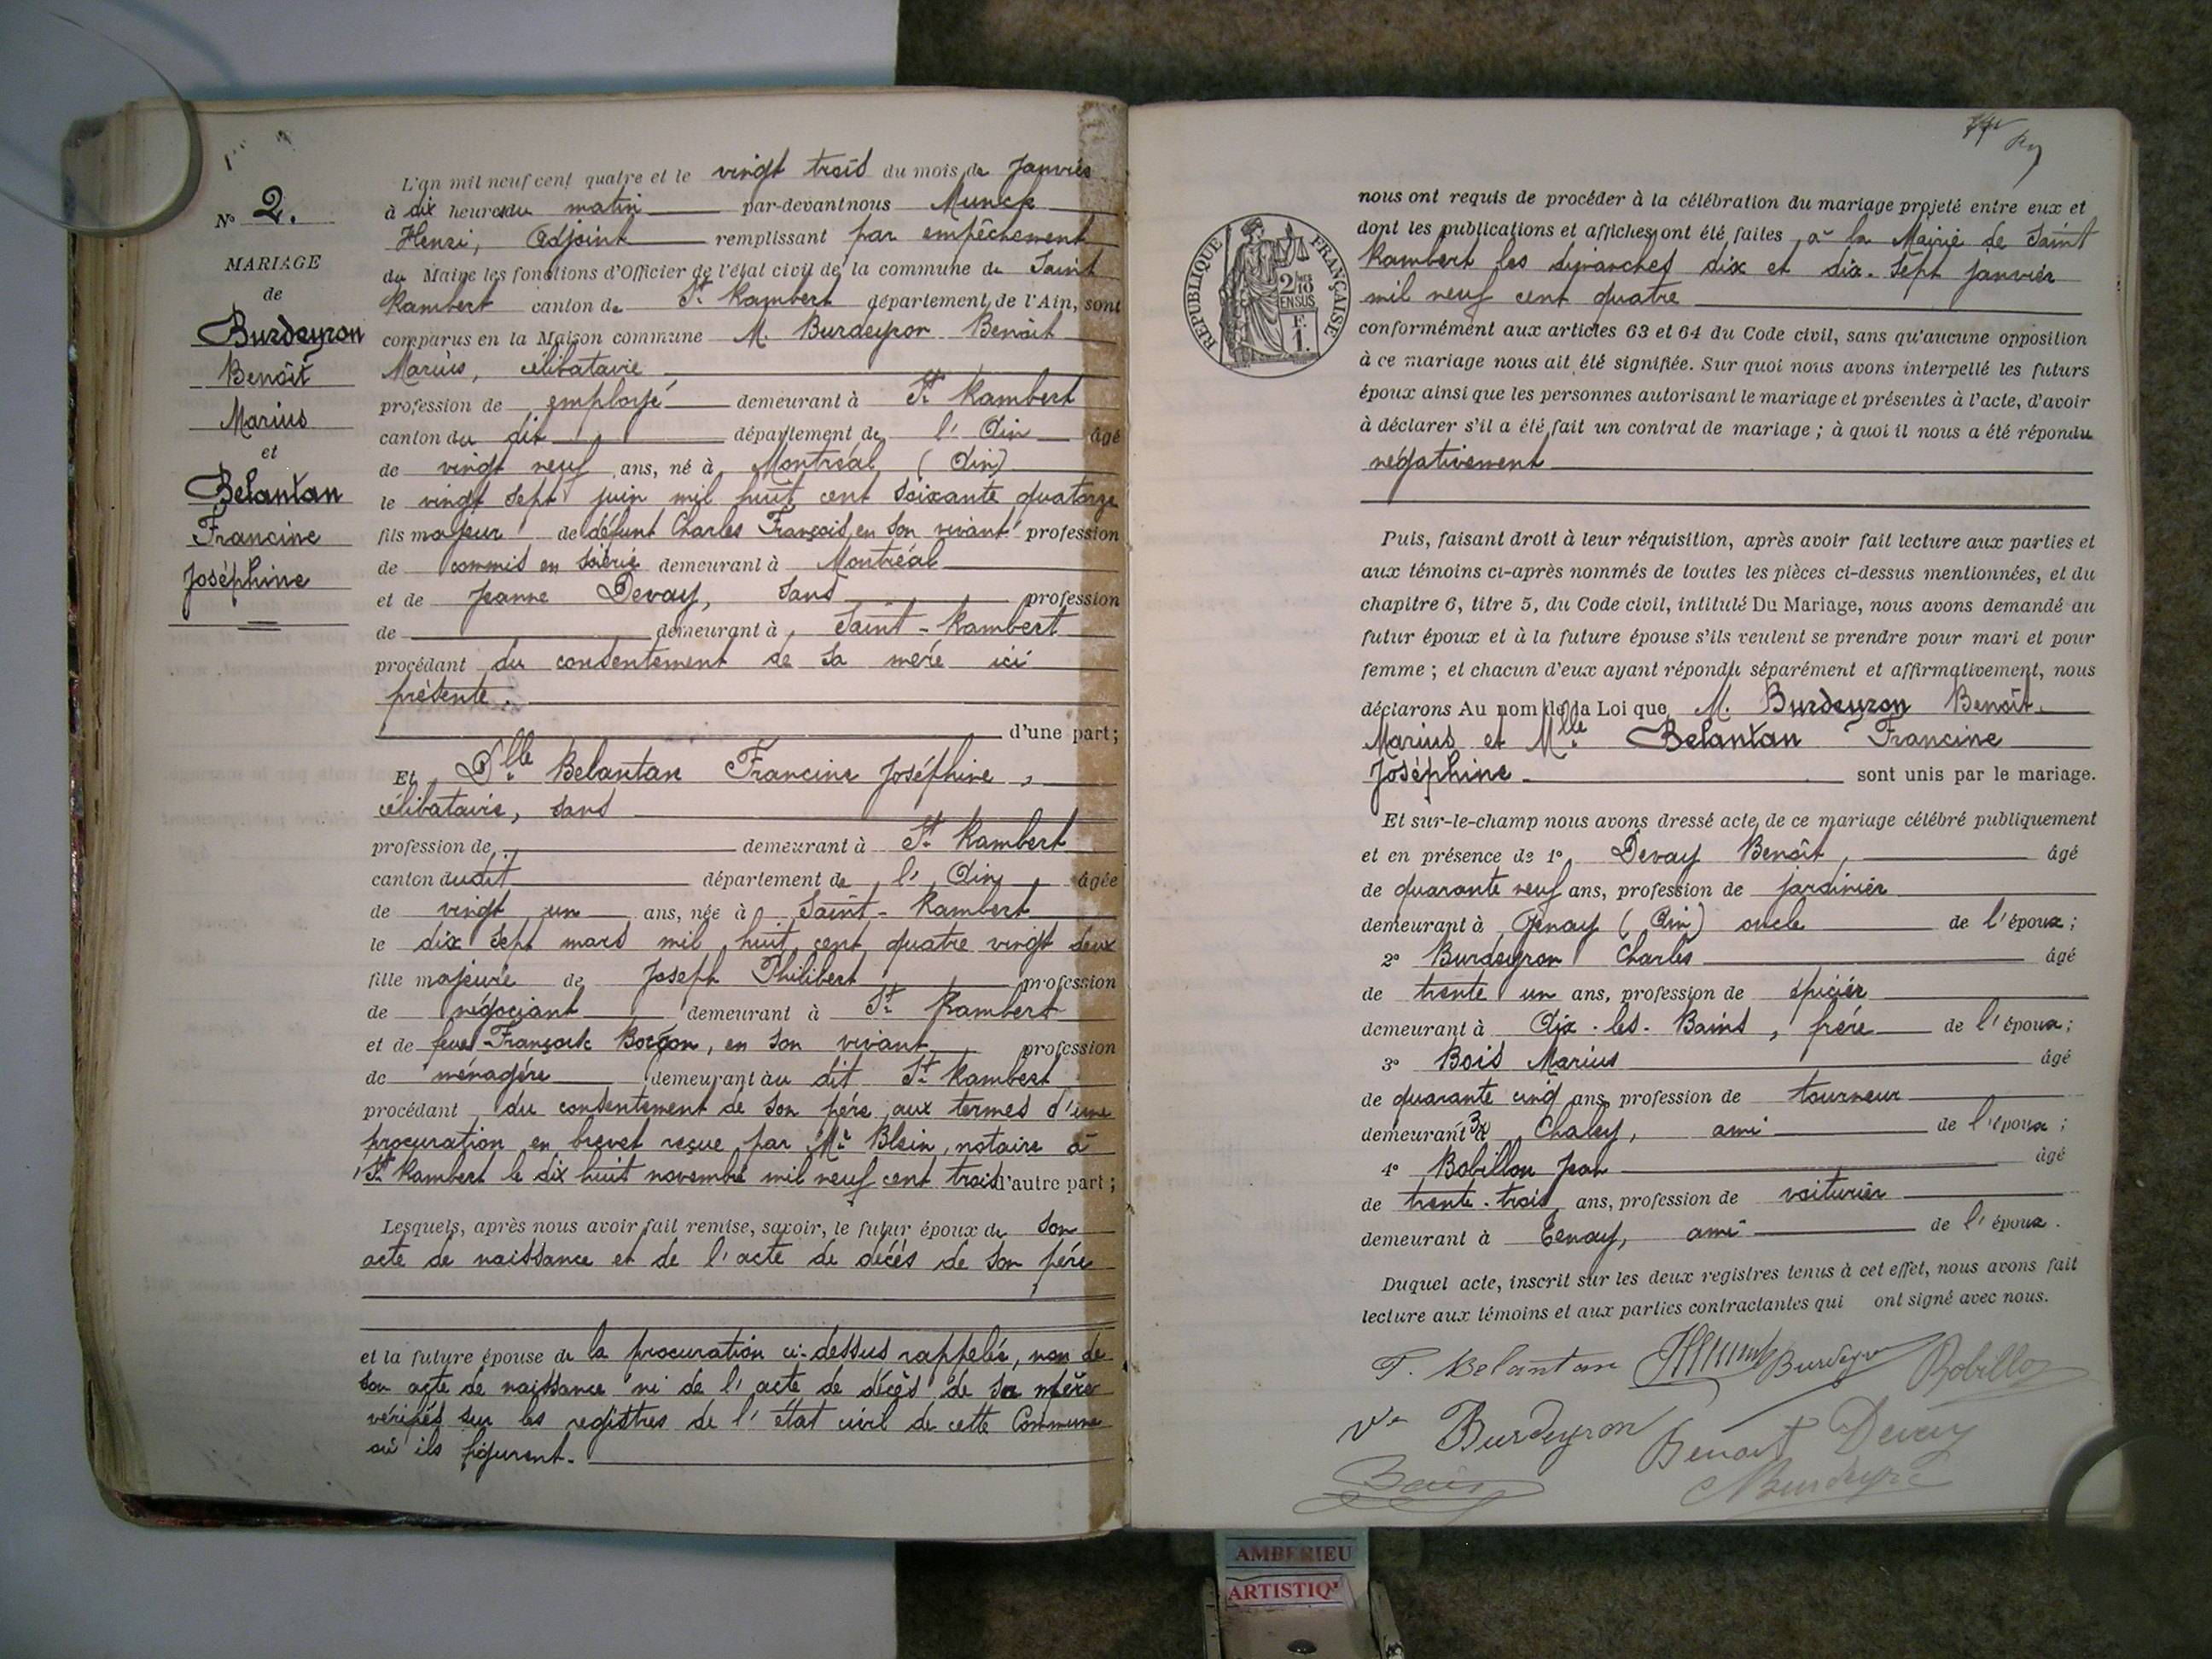 N° 2.
MARIAGE
de
Burdeyron
Benoît
Marius
et
Belantan
Francine
Joséphine
L'an mil neuf cent quatre et le vingt trois du mois de Janvier
à dix heures du matin par-devant nous Munck
Henri, Adjoint remplissant par empêchement
du Maire les fonctions d'Officier de l'état civil de la commune de Saint
Rambert canton de St Rambert département de l'Ain, sont
comparus en la Maison commune M. Burdeyron Benoit
Marius, célibataire
profession de employé demeurant à St Rambert
canton du dit département de l'Ain âgé
de vingt neuf ans, né à Montréal (Ain)
le vingt sept juin mil huit cent soixante quatorze
fils majeur de défunt Charles François, en son vivant profession
de commis en soierie demeurant à Montréal
et de Jeanne Devay, sans profession
de demeurant à Saint-Rambert
procédant du consentement de sa mère ici
présente.
d'une part;
Et Dlle Belantan Francine Joséphine,
célibataire, sans
profession de demeurant à St Rambert
canton dudit département de l'Ain âgée
de vingt un ans, née à Saint-Rambert
le dix sept mars mil huit cent quatre vingt deux
fille majeure de Joseph Philibert profession
de négociant demeurant à St Rambert
et de feue Françoise, en son vivant profession
de ménagère demeurant au dit St Rambert
procédant du consentement de son père, aux termes d'une
procuration en brevet reçue par Me Blein, notaire à
St Rambert le dix huit novembre mil neuf cent trois d'autre part;
Lesquels, après nous avoir fait remise, savoir, le futur époux de son
acte de naissance et de l'acte de décès de son père
et la future épouse de la procuration ci-dessus rappelée, non de
son acte de naissance ni de l'acte de décès de sa mère
vérifiés sur les registres de l'état civil de cette Commune
où ils figurent.
RÉPUBLIQUE FRANÇAISE
2/10 EN SUS
F.
1.
nous ont requis de procéder à la célébration du mariage projeté entre eux et
dont les publications et affiches ont été faites à la Mairie de Saint
Rambert les dimanches dix et dix-sept janvier
mil neuf cent quatre
conformément aux articles 63 et 64 du Code civil, sans qu'aucune opposition
à ce mariage nous ait été signifiée. Sur quoi nous avons interpellé les futurs
époux ainsi que les personnes autorisant le mariage et présentes à l'acte, d'avoir
à déclarer s'il a été fait un contrat de mariage; à quoi il nous a été répondu
négativement
Puis, faisant droit à leur réquisition, après avoir fait lecture aux parties et
aux témoins ci-après nommés de toutes les pièces ci-dessus mentionnées, et du
chapitre 6, titre 5, du Code civil, intitulé Du Mariage, nous avons demandé au
futur époux et à la future épouse s'ils veulent se prendre pour mari et pour
femme; et chacun d'eux ayant répondu séparément et affirmativement, nous
déclarons Au nom de la Loi que M. Burdeyron Benoît.
Marius et Mlle Belantan Francine
Joséphine sont unis par le mariage.
Et sur-le-champ nous avons dressé acte de ce mariage célébré publiquement
et en présence de 1° Devay Benoît, âgé
de quarante neuf ans, profession de jardinier
demeurant à (Ain) oncle de l'époux;
2° Burdeyron Charles âgé
de trente un ans, profession de épicier
demeurant à Aix-les-Bains, frère de l'époux;
3° Bois Marius âgé
de quarante cinq ans, profession de tourneur
demeurant à Chaley, ami de l'époux;
4° Bobillon Jean âgé
de trente-trois ans, profession de voiturier
demeurant à Tenay, ami de l'époux.
Duquel acte, inscrit sur les deux registres tenus à cet effet, nous avons fait
lecture aux témoins et aux parties contractantes qui ont signé avec nous.
F. Belantan Burdeyron Bobillon
Ve Burdeyron Benoit Devay
Bois
AMBERIEU
ARTISTIQ